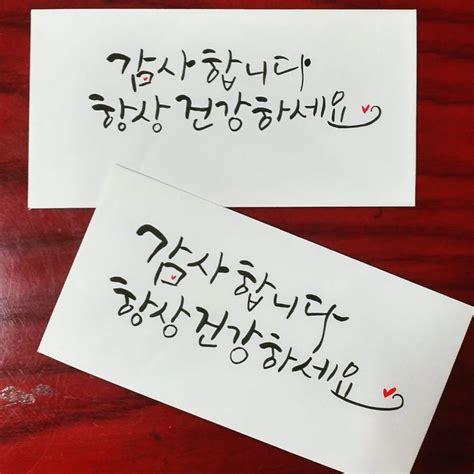 감사합니다
항상 건강하세요
감사합니다
항상 건강하세요